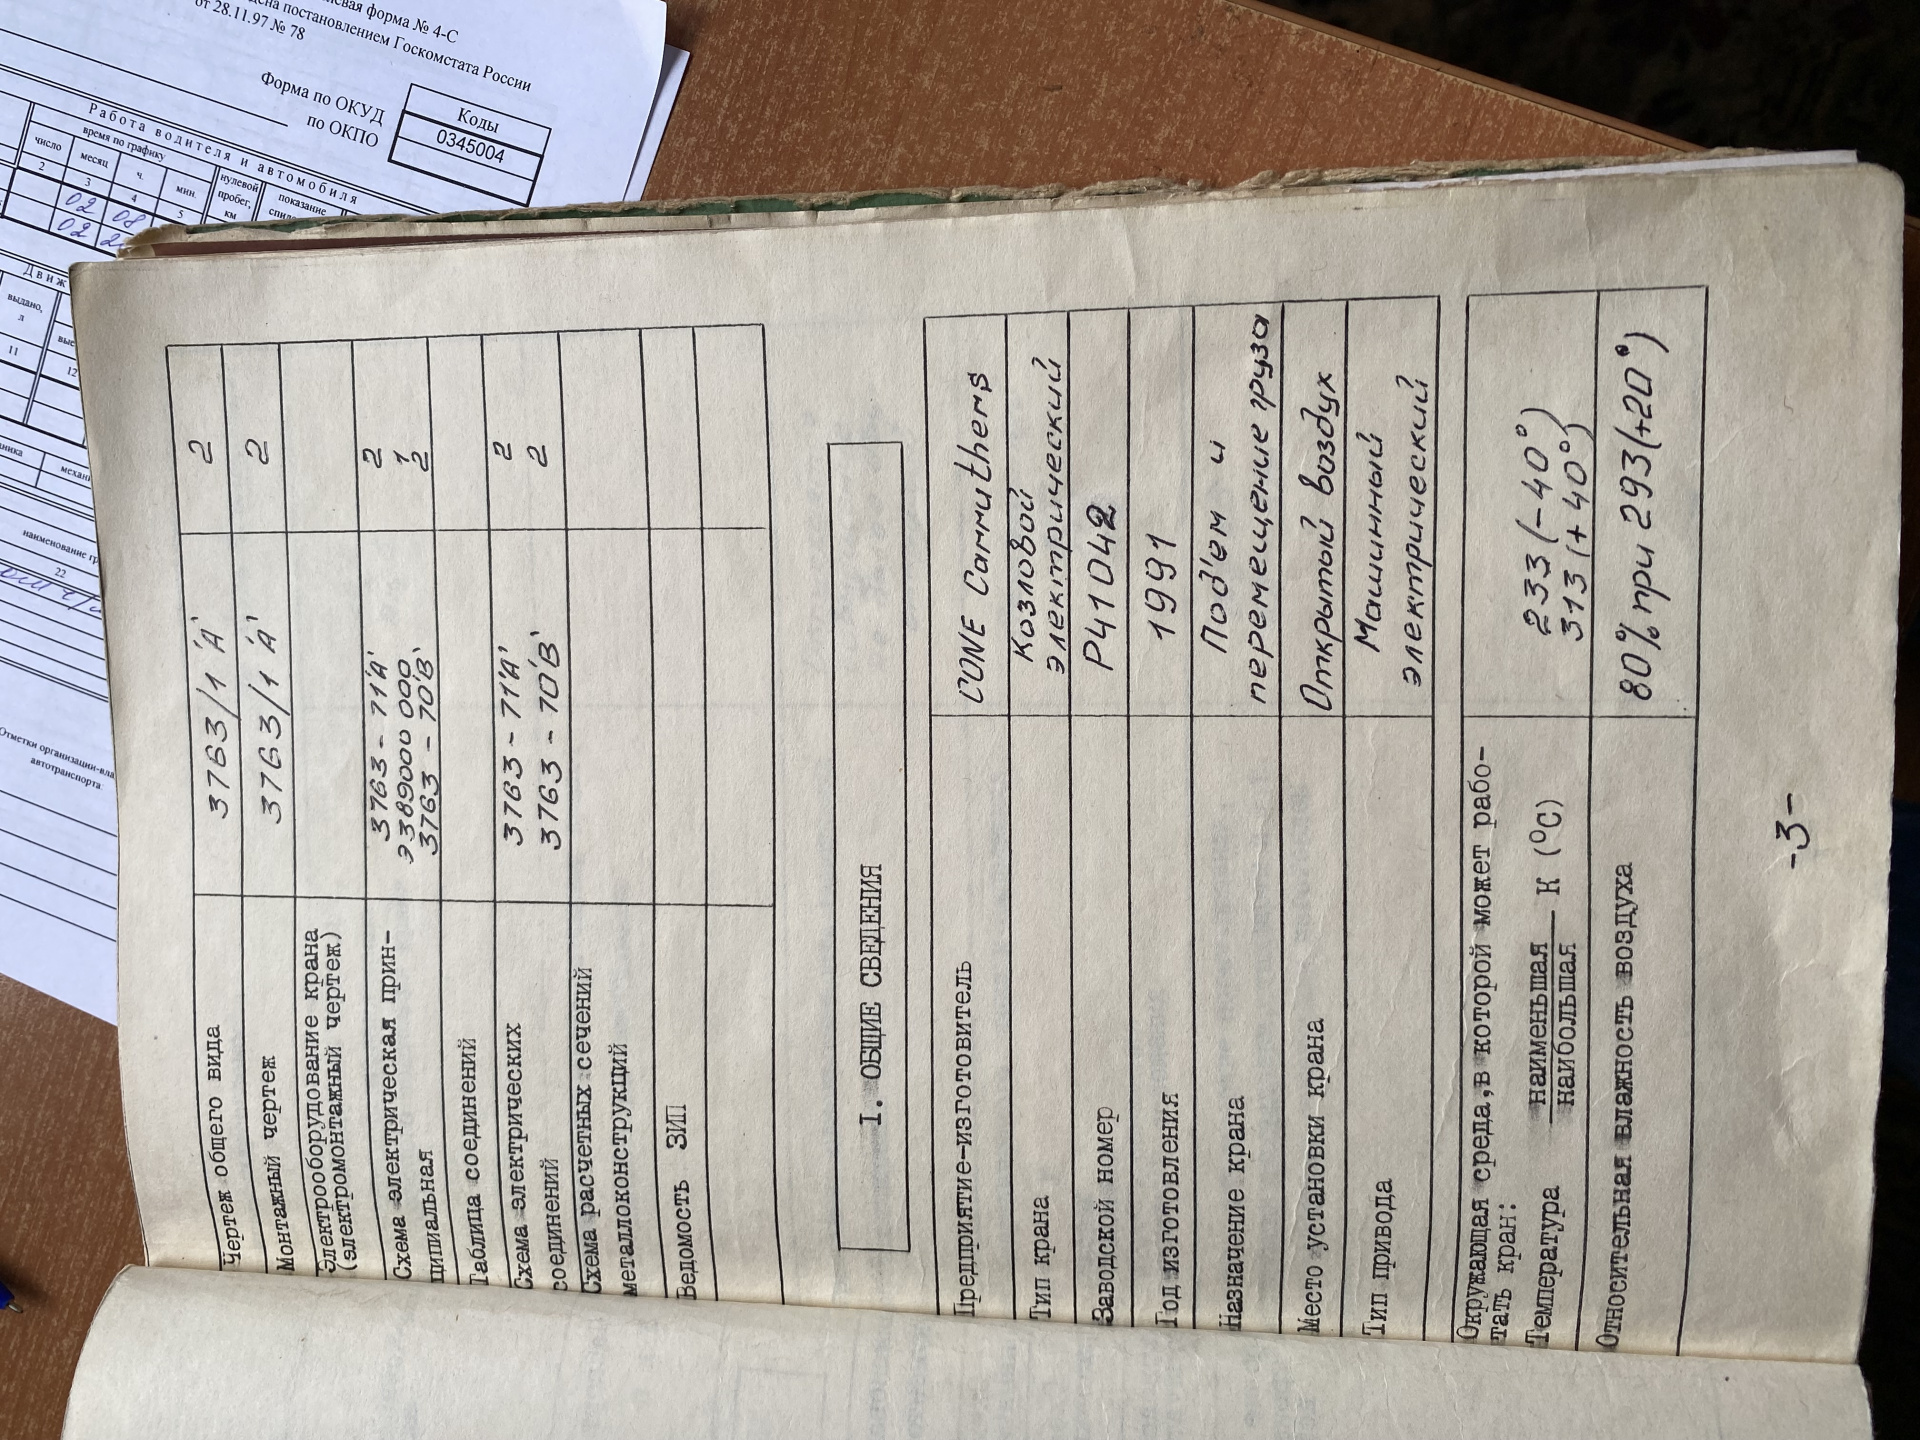 вая форма № 4-С
ена постановлением Госкомстата России
от 28.11.97 № 78
Форма по ОКУД
по ОКПО
Коды
0345004
Работа водителя и автомобиля
время по графику
число
месяц
ч.
мин.
нулевой пробег, км
показание
2
3
4
5
02 08
02
выдано, л
11
12
22
автотранспорта
Чертеж общего вида 3763/1 'А' 2
Монтажный чертеж 3763/1 'А' 2
Электрооборудование крана
(электромонтажный чертеж)
Схема электрическая прин- 3763 - 71'А' 2
Э389000 000 1
ципиальная 3763 - 70'В' 2
Таблица соединений
Схема электрических 3763 - 71'А' 2
соединений 3763 - 70'В' 2
Схема расчетных сечений
металлоконструкций
Ведомость ЗИП
I. ОБЩИЕ СВЕДЕНИЯ
Предприятие-изготовитель CONE Carruthers
Тип крана Козловой
электрический
Заводской номер Р41042
Год изготовления 1991
Назначение крана Под'ем и
перемещение груза
Место установки крана Открытый воздух
Тип привода Машинный
электрический
Окружающая среда,в которой может рабо-
тать кран:
Температура наименьшая К (°С) 233 (-40°)
наибольшая 313 (+40°)
Относительная влажность воздуха 80% при 293(+20°)
-3-